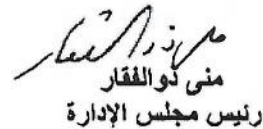 منى ذو الفقار
رئيس مجلس الإدارة